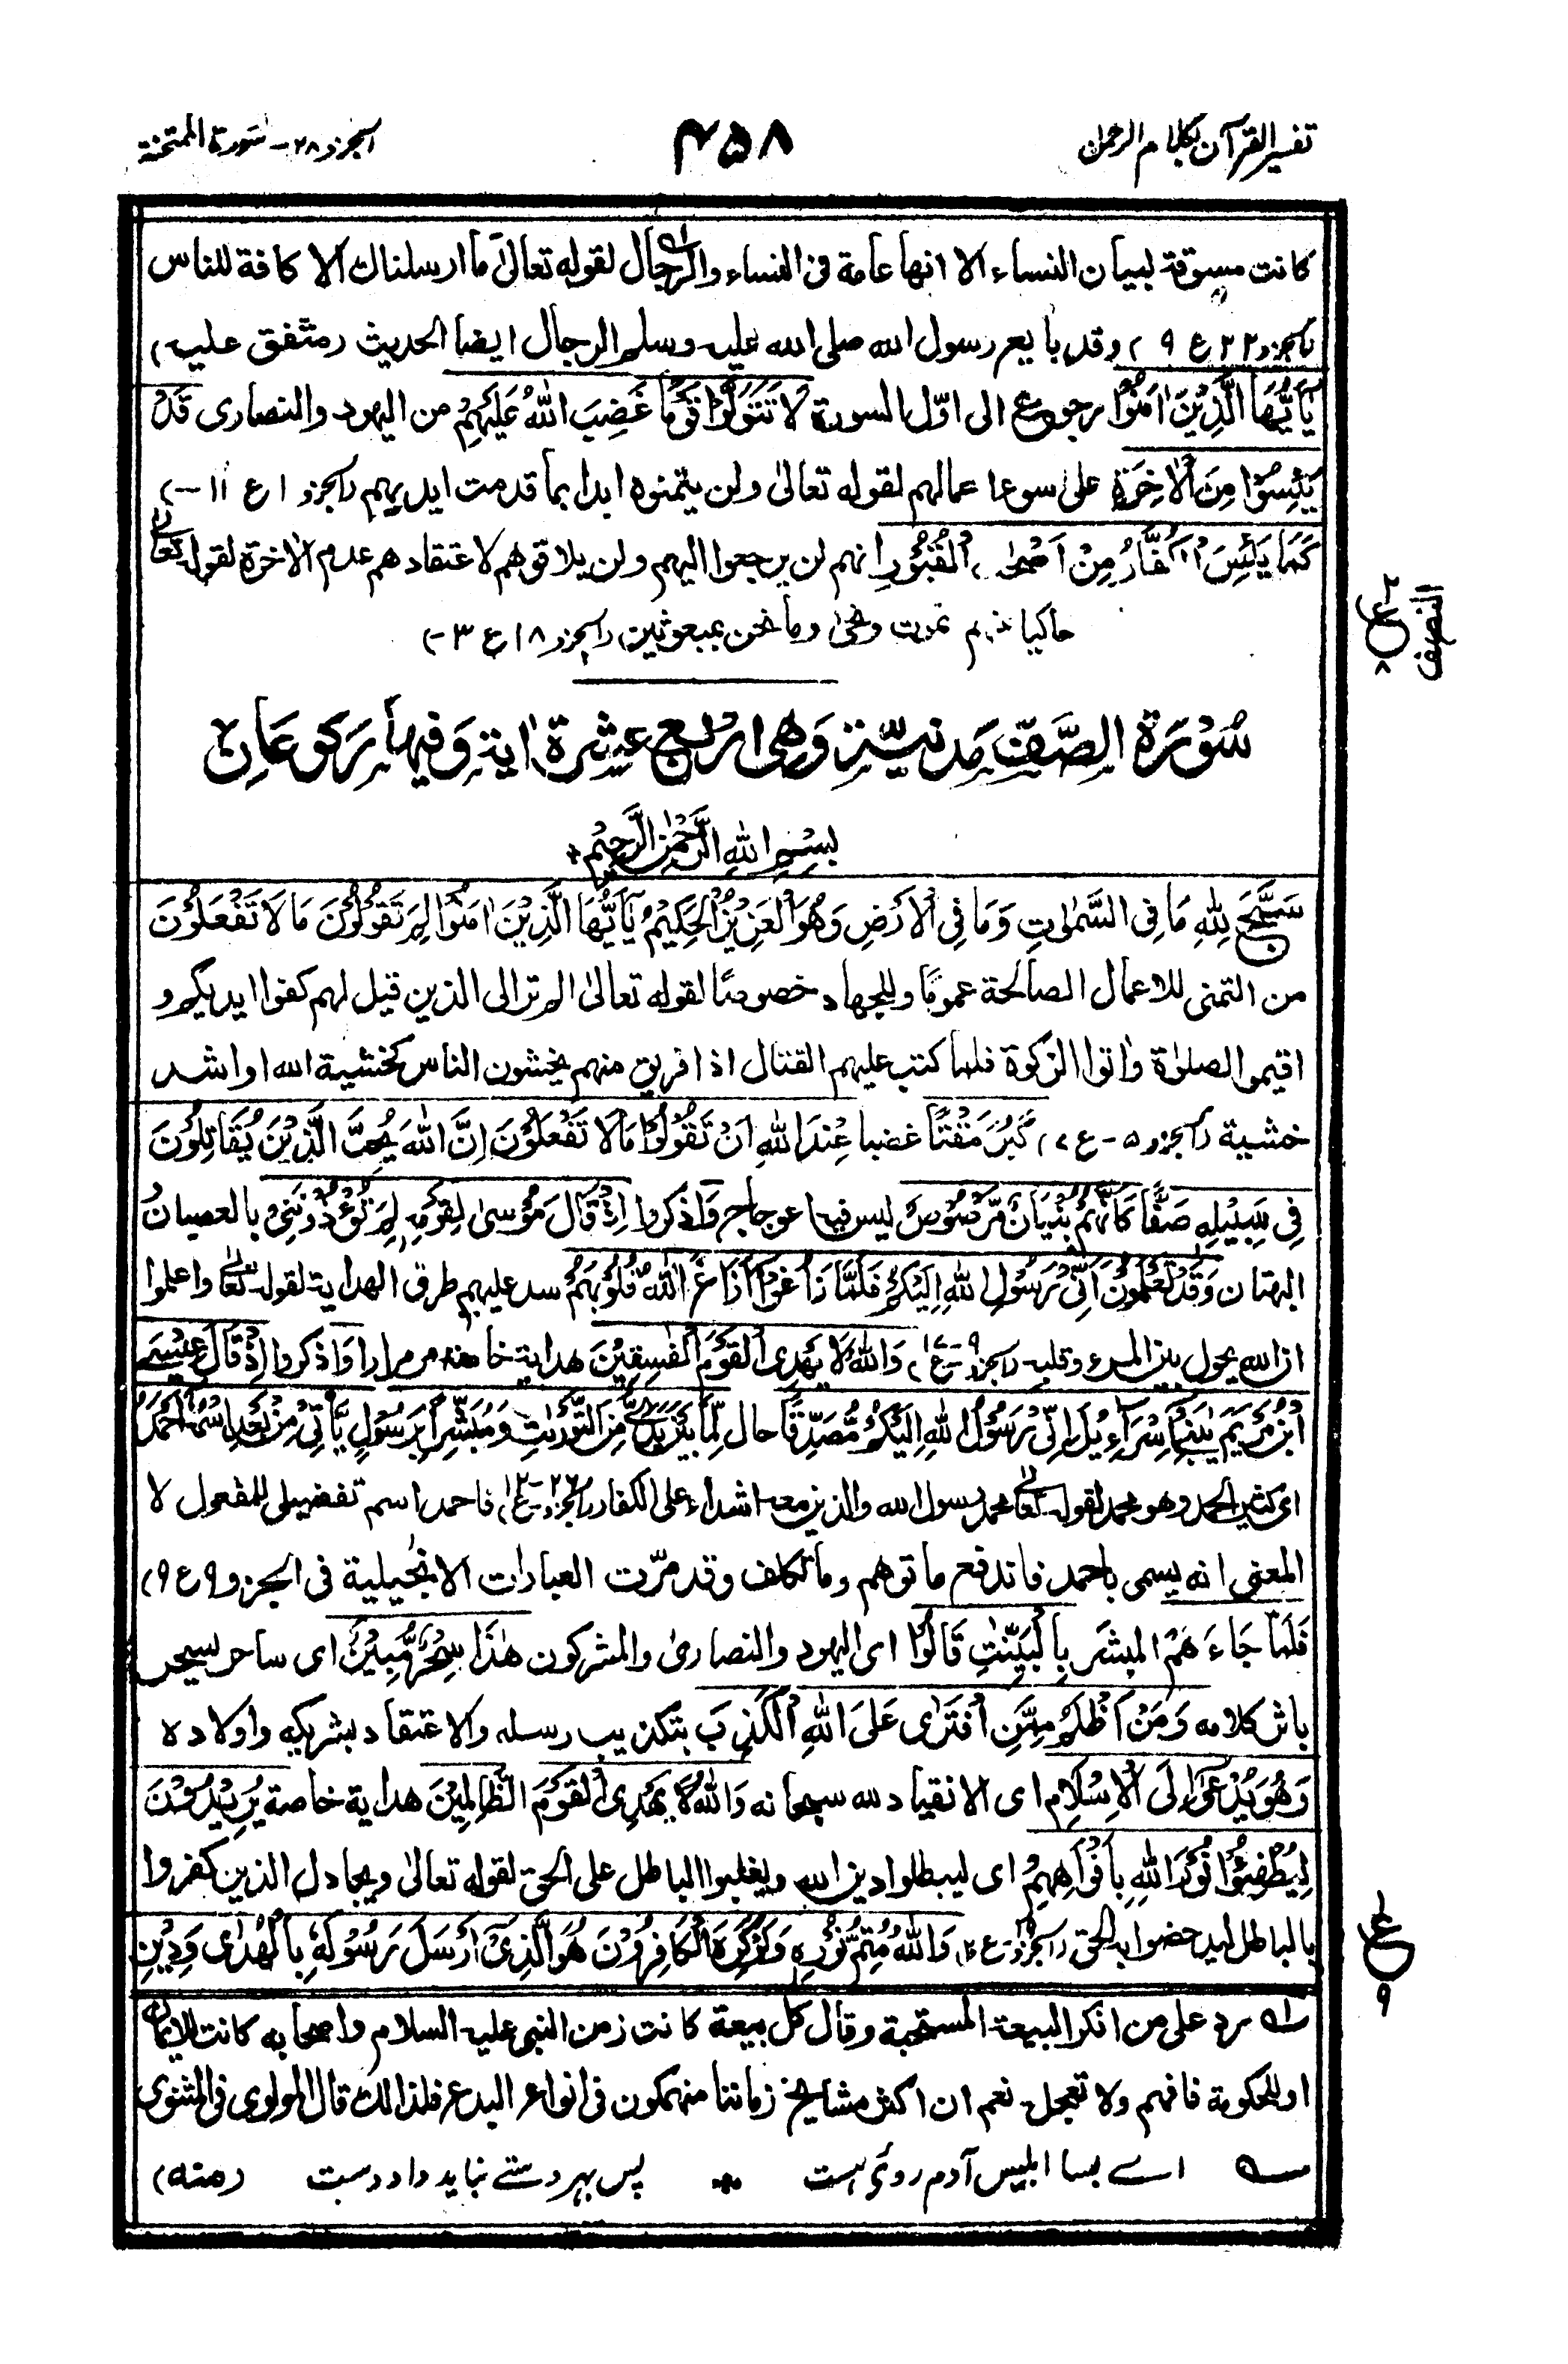 تفسير القرآن بكلام الرحمن
۴۵۸
الجزو ۲۸ - سورة الممتحنة
كانت مسوقة لبيان النساء الا انها عامة فى النساء والرجال لقوله تعالىٰ ما ارسلناك الا كافة للناس
(الجزو ۲۲ ع ۹) وقد بايع رسول الله صلى الله عليه وسلم الرجال ايضا الحديث (متفق عليه)
يٰٓاَيُّهَا الَّذِيْنَ اٰمَنُوْا رجوع الى اوّل السورة لَا تَتَوَلَّوْا قَوْمًا غَضِبَ اللّٰهُ عَلَيْهِمْ من اليهود والنصارى قَدْ
يَئِسُوْا مِنَ الْاٰخِرَةِ على سوء اعمالهم لقوله تعالىٰ ولن يتمنوه ابدا بما قدمت ايديهم (الجزو ۱ ع ۱۱-)
كَمَا يَئِسَ الْكُفَّارُ مِنْ اَصْحٰبِ الْقُبُوْرِ انهم لن يرجعوا اليهم ولن يلاقوهم لاعتقادهم عدم الاٰخرة لقوله تعالىٰ
حاكيا عنهم نموت ونحىٰ وما نحن بمبعوثين (الجزو ۱۸ ع ۳-)
۲
ع
۸
النصف
سُوْرَةُ الصَّفِّ مَدَنِيَّةٌ وَهِىَ اَرْبَعَ عَشِرَةَ اٰيَة وَفِيهَا رَكُوعَانِ
بِسْمِ اللّٰهِ الرَّحْمٰنِ الرَّحِيْمِ
سَبَّحَ لِلّٰهِ مَا فِى السَّمٰوٰتِ وَمَا فِى الْاَرْضِ وَهُوَ الْعَزِيْزُ الْحَكِيْمُ يٰٓاَيُّهَا الَّذِيْنَ اٰمَنُوْا لِمَ تَقُوْلُوْنَ مَا لَا تَفْعَلُوْنَ
من التمنى للاعمال الصالحة عمومًا وللجهاد خصوصًا لقوله تعالىٰ الم تر الى الذين قيل لهم كفوا ايديكم و
اقيموا الصلوٰة واٰتوا الزكوة فلما كتب عليهم القتال اذا فريق منهم يخشون الناس كخشية الله او اشد
خشية (الجزو ۵ - ع ۷) كَبُرَ مَقْتًا غضبا عِنْدَ اللّٰهِ اَنْ تَقُوْلُوْا مَا لَا تَفْعَلُوْنَ اِنَّ اللّٰهَ يُحِبُّ الَّذِيْنَ يُقَاتِلُوْنَ
فِىْ سَبِيْلِهٖ صَفًّا كَاَنَّهُمْ بُنْيَانٌ مَّرْصُوْصٌ ليس فيها عوجاج وَ اذكروا اِذْ قَالَ مُوْسىٰ لِقَوْمِهٖ لِمَ تُؤْذُوْنَنِىْ بالعصيان
البهتان وَقَدْ تَّعْلَمُوْنَ اَنِّىْ رَسُوْلُ اللّٰهِ اِلَيْكُمْ فَلَمَّا زَاغُوْٓا اَزَاغَ اللّٰهُ قُلُوْبَهُمْ سد عليهم طرق الهداية لقوله تعالىٰ واعلموا
ان الله يحول بين المرء وقلبه (الجزو ۹ - ع ۱۷) وَاللّٰهُ لَا يَهْدِى الْقَوْمَ الْفٰسِقِيْنَ هداية خاصة مر مرارا وَ اذكروا اِذْ قَالَ عِيْسَى
ابْنُ مَرْيَمَ يٰبَنِىْٓ اِسْرَآءِيْلَ اِنِّىْ رَسُوْلُ اللّٰهِ اِلَيْكُمْ مُّصَدِّقًا حال لِّمَا بَيْنَ يَدَىَّ مِنَ التَّوْرٰىةِ وَمُبَشِّرًا بِرَسُوْلٍ يَّاْتِىْ مِنْ بَعْدِى اسْمُهٗٓ اَحْمَدُ
اى كثير الحمد وهو محمد لقوله تعالىٰ محمد رسول الله والذين معه اشداء على الكفار (الجزو ۲۶ - ع ۱۲) فاحمد اسم تفضيل للمفعول لا
المعنى انه يسمى باحمد فاندفع ما توهم وما تكلف وقد مرّت العبارات الانجيلية فى الجزو ۹ ع ۹)
فَلَمَّا جَاءَهُمْ المبشر بِالْبَيِّنٰتِ قَالُوْا اى اليهود والنصارىٰ والمشركون هٰذَا سِحْرٌ مُّبِيْنٌ اى ساحر يسحر
باثر كلامه وَمَنْ اَظْلَمُ مِمَّنِ افْتَرٰى عَلَى اللّٰهِ الْكَذِبَ بتكذيب رسله والاعتقاد بشريكه واولاده
وَهُوَ يُدْعٰٓى اِلَى الْاِسْلَامِ اى الانقياد لله سبحانه وَاللّٰهُ لَا يَهْدِى الْقَوْمَ الظّٰلِمِيْنَ هداية خاصة يُرِيْدُوْنَ
لِيُطْفِئُوْا نُوْرَ اللّٰهِ بِاَفْوَاهِهِمْ اى ليبطلوا دين الله ويغلبوا الباطل على الحق لقوله تعالىٰ ويجادل الذين كفروا
بالباطل ليدحضوا به الحق (الجزو - ع) وَاللّٰهُ مُتِمُّ نُوْرِهٖ وَلَوْ كَرِهَ الْكَافِرُوْنَ هُوَ الَّذِىْٓ اَرْسَلَ رَسُوْلَهٗ بِالْهُدٰى وَدِيْنِ
۱
ع
۹
له رد على من انكر البيعة المستحبة وقال كل بيعة كانت زمن النبى عليه السلام واصحابه كانت للايمان
او للحكومة فافهم ولا تعجل نعم ان اكثر مشايخ زماننا منهمكون فى انواع البدع فلذالك قال المولوى فى المثنوى
اے بسا ابلیس آدم روئے ہست * پس بہر دستے نباید داد دست (منه)